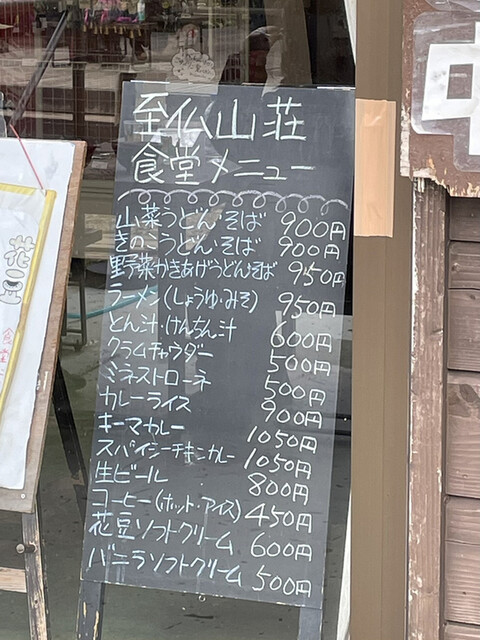 至仏山荘
食堂メニュー
山菜うどん・そば 900円
きのこうどん・そば 900円
野菜かきあげうどんそば 950円
ラーメン(しょうゆ・みそ) 950円
とん汁・けんちん汁 600円
クラムチャウダー 500円
ミネストローネ 500円
カレーライス 900円
キーマカレー 1050円
スパイシーチキンカレー 1050円
生ビール 800円
コーヒー(ホット・アイス) 450円
花豆ソフトクリーム 600円
バニラソフトクリーム 500円
花豆